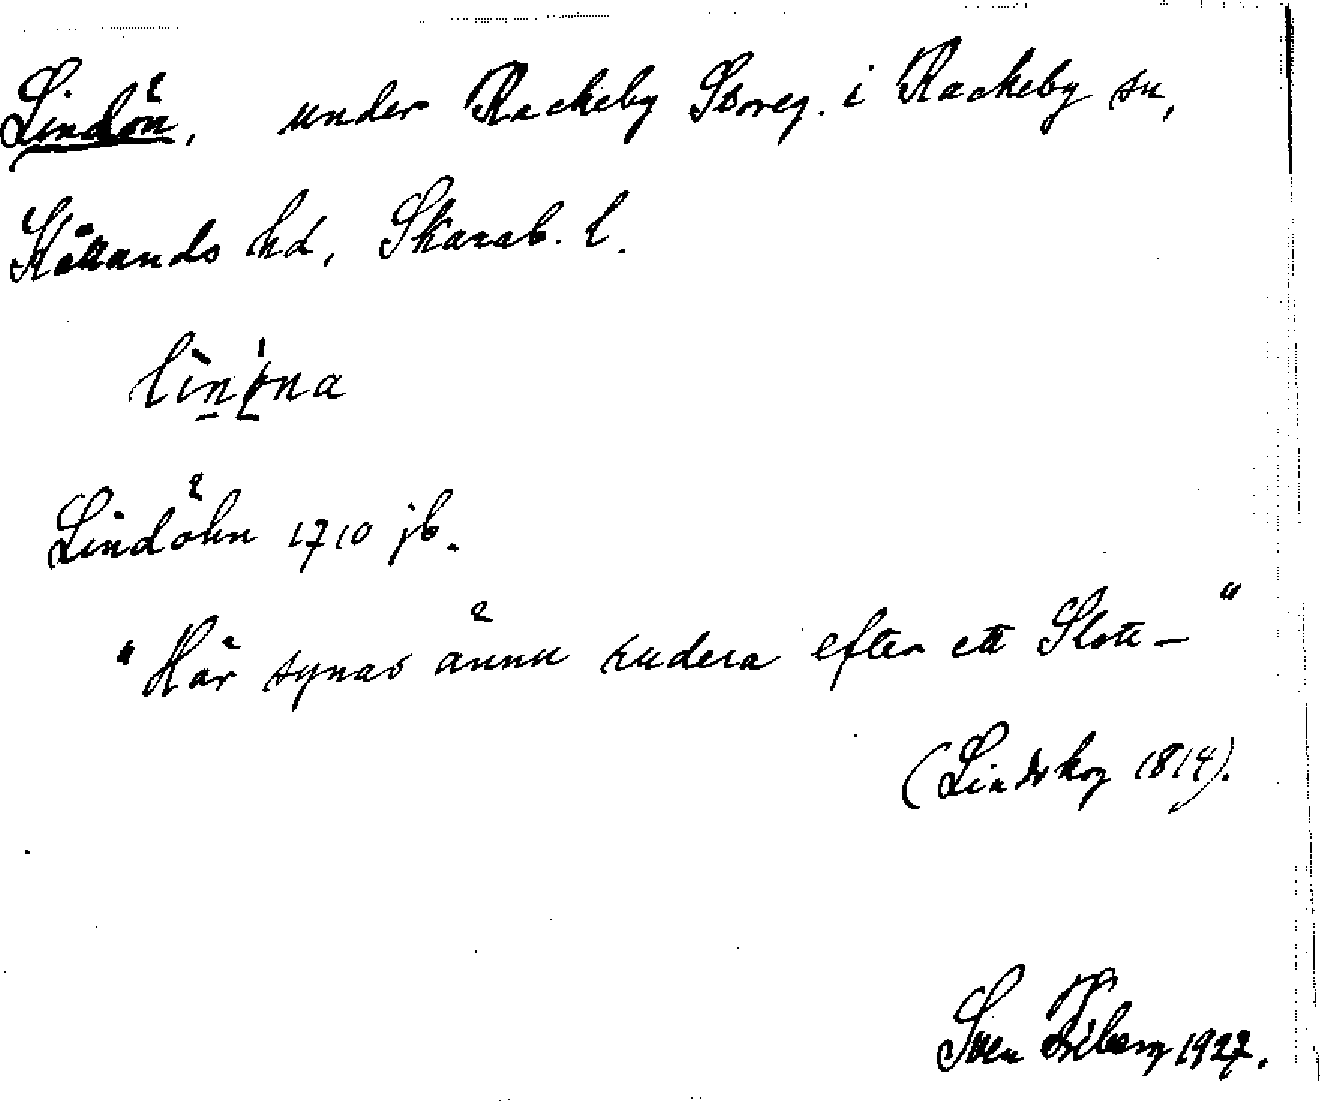 Lindön, under Rackeby Storeg. i Rackeby sn,
Kållands hd, Skarab. l.
Lindöhn 1710 jb.
"Här synas ännu rudera efter ett Slott—"
(Lindskog 1814).
Sven Friberg 1927.